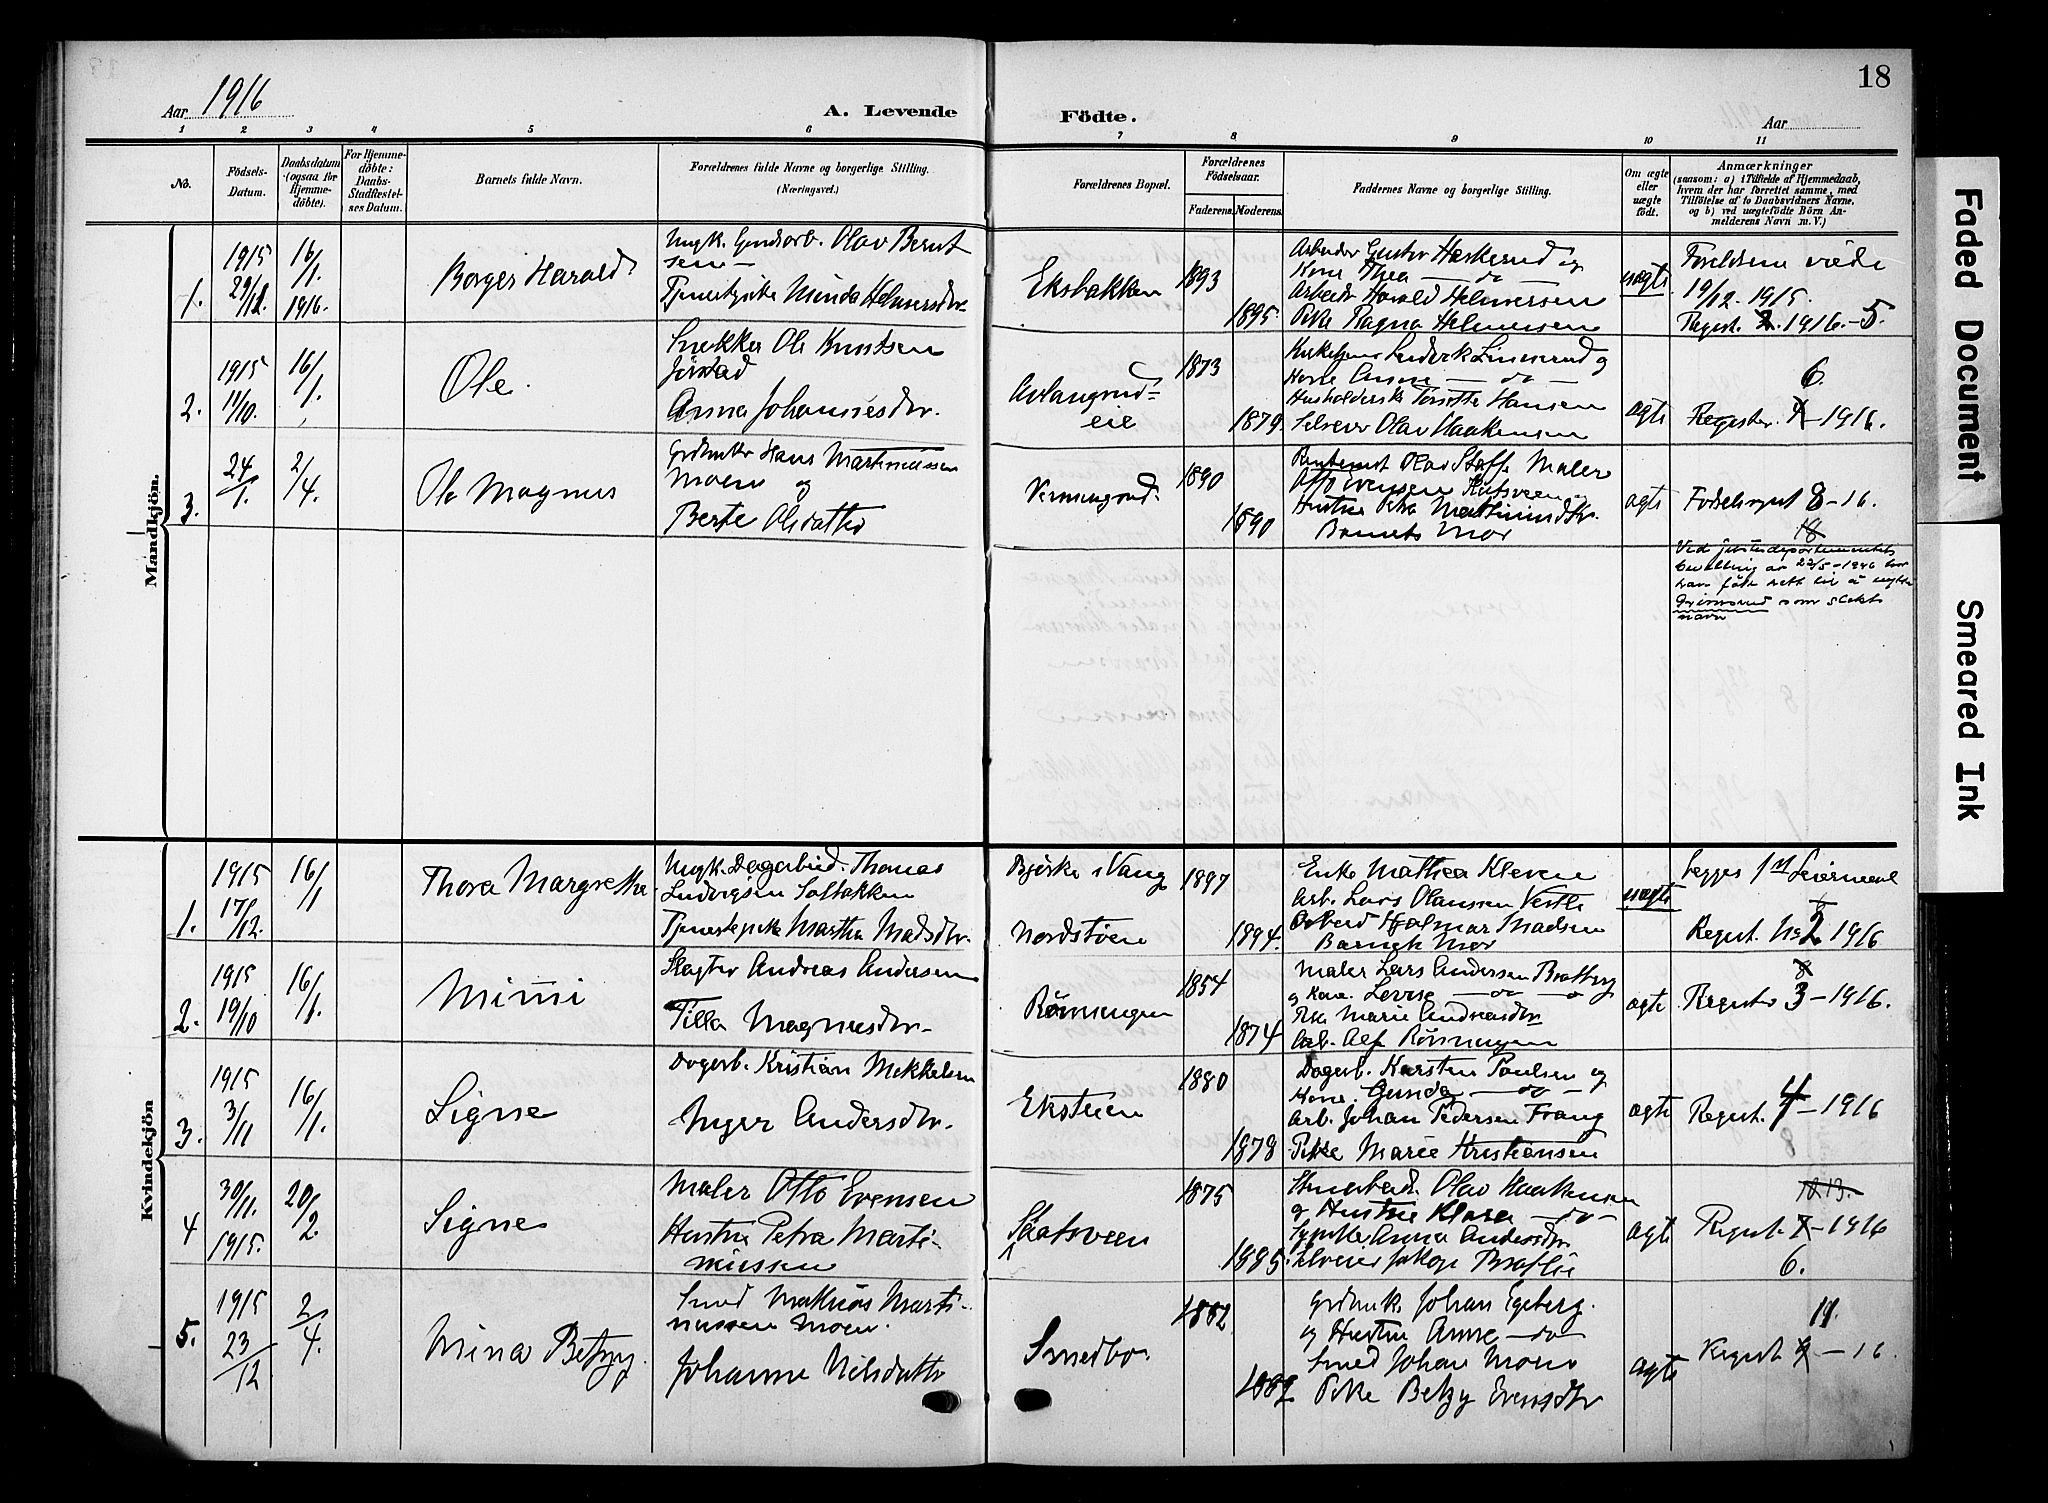 18
Aar 1916
A. Levende
Födte.
Aar
1 2 3 4 5 6 7 8 9 10 11
No.
Födsels-
Datum.
Daabsdatum
(ogsaa for
Hjemme-
döbte).
For Hjemme-
döbte:
Daabs-
Stadfæstel-
ses Datum.
Barnets fulde Navn.
Forældrenes fulde Navne og borgerlige Stilling.
(Næringsvei.)
Forældrenes Bopæl.
Forældrenes
Födselsaar.
Faderens. Moderens.
Faddernes Navne og borgerlige Stilling.
Om ægte
eller
uægte
födt.
Anmærkninger
(saasom: a) i Tilfælde af Hjemmedaab,
hvem der har forrettet samme, med
Tilföielse af to Daabsvidners Navne,
og b) ved uægtefödte Börn An-
melderens Navn m. V.)
Mandkjön.
1.
1915
29/12.
16/1.
1916.
Borger Harald
Ungk. Olav Bernt
sen
Tjenestepike Minda Helmersdtr.
Eksbakken
1893
1895.
Arbeider Gustav og
Kone Thea — do
Arbeidr Harald Helmersen
Pike Ragna Helmersen
uægte
19/12. 1915.
Regist. 2. 1916. - 5.
2.
1915
11/10.
16/1.
Ole.
Snekker Ole Knutsen
Jörstad
Anna Johannesdtr.
eie
1873
1879.
og
Kone Anne — do —
Hansen
Olav Haakensen
ægte
6.
Register. 4 - 1916.
3.
24/1.
2/4.
Ole Magnus
Hans Martiniussen
Moen og
Berte Olsdatter
1890
1890
Olav Maler
Otto Evensen og
Hustru Petra
Barnets Mor
ægte
8 - 16.
18
Ved justisdepartementets
bevilling av 22/5 - 1946 har
han fått rett til å nytte
Grimsrud som slekts
navn
Kvindekjön
1.
1915
17/12.
16/1
Thora Margrethe
Ungk. Thomas
Ludvigsen Solbakken
Tjenestepike Martha Madsdtr.
Bjørke i Vang
Nordstøen
1897
1894.
Enke Mathea Kleven
Arb. Lars Olaussen Vestli
Arbeid Hjalmar Madsen
Barnets Mor
uægte
Begges 1st Leiermaal
Regist. No 2 1916
2.
1915
19/10
16/1.
Mimmi
Slagter Andreas Andersen
Tilla Magnusdtr.
Rønningen
1854
1874
Maler Lars Andersen Bratberg
og Kone. — do — o
Pike Marie Andreasdtr
Arb. Alf Rønningen
ægte
8
Register 3 - 1916.
3.
1915
3/11
16/1.
Signe
Dagarb. Kristian Mikkelsen
Inger Andersdtr.
Eksteien
1880
1878
Dagarb. Karsten Paulsen og
Kone. Gunda — do —
Arb. Johan Pedersen Frang
Pike Marie Kristiansen
ægte
Regist. 4 - 1916
4
30/11.
1915.
20/2.
Signe
Maler Otto Evensen
Hustru Petra Marti-
niussen
Skatsveen
1875
1885.
Olav Haakensen
og Hustru Klara — do —
Anna Andersdtr
Jakop Braflie
ægte
12 13.
Regist. 7 - 1916
6.
5.
1915
23/12
2/4.
Mina Betzy.
Smed Mathias Marti-
nussen Moen.
Johanne Nilsdatter
Smedbo.
1882
1882
Johan Egeberg.
og Hustru Anne — do —
Smed Johan Moen
Pike Betzy Evensdtr
ægte
11.
Regist 9 - 16.
Faded Document
Smeared Ink